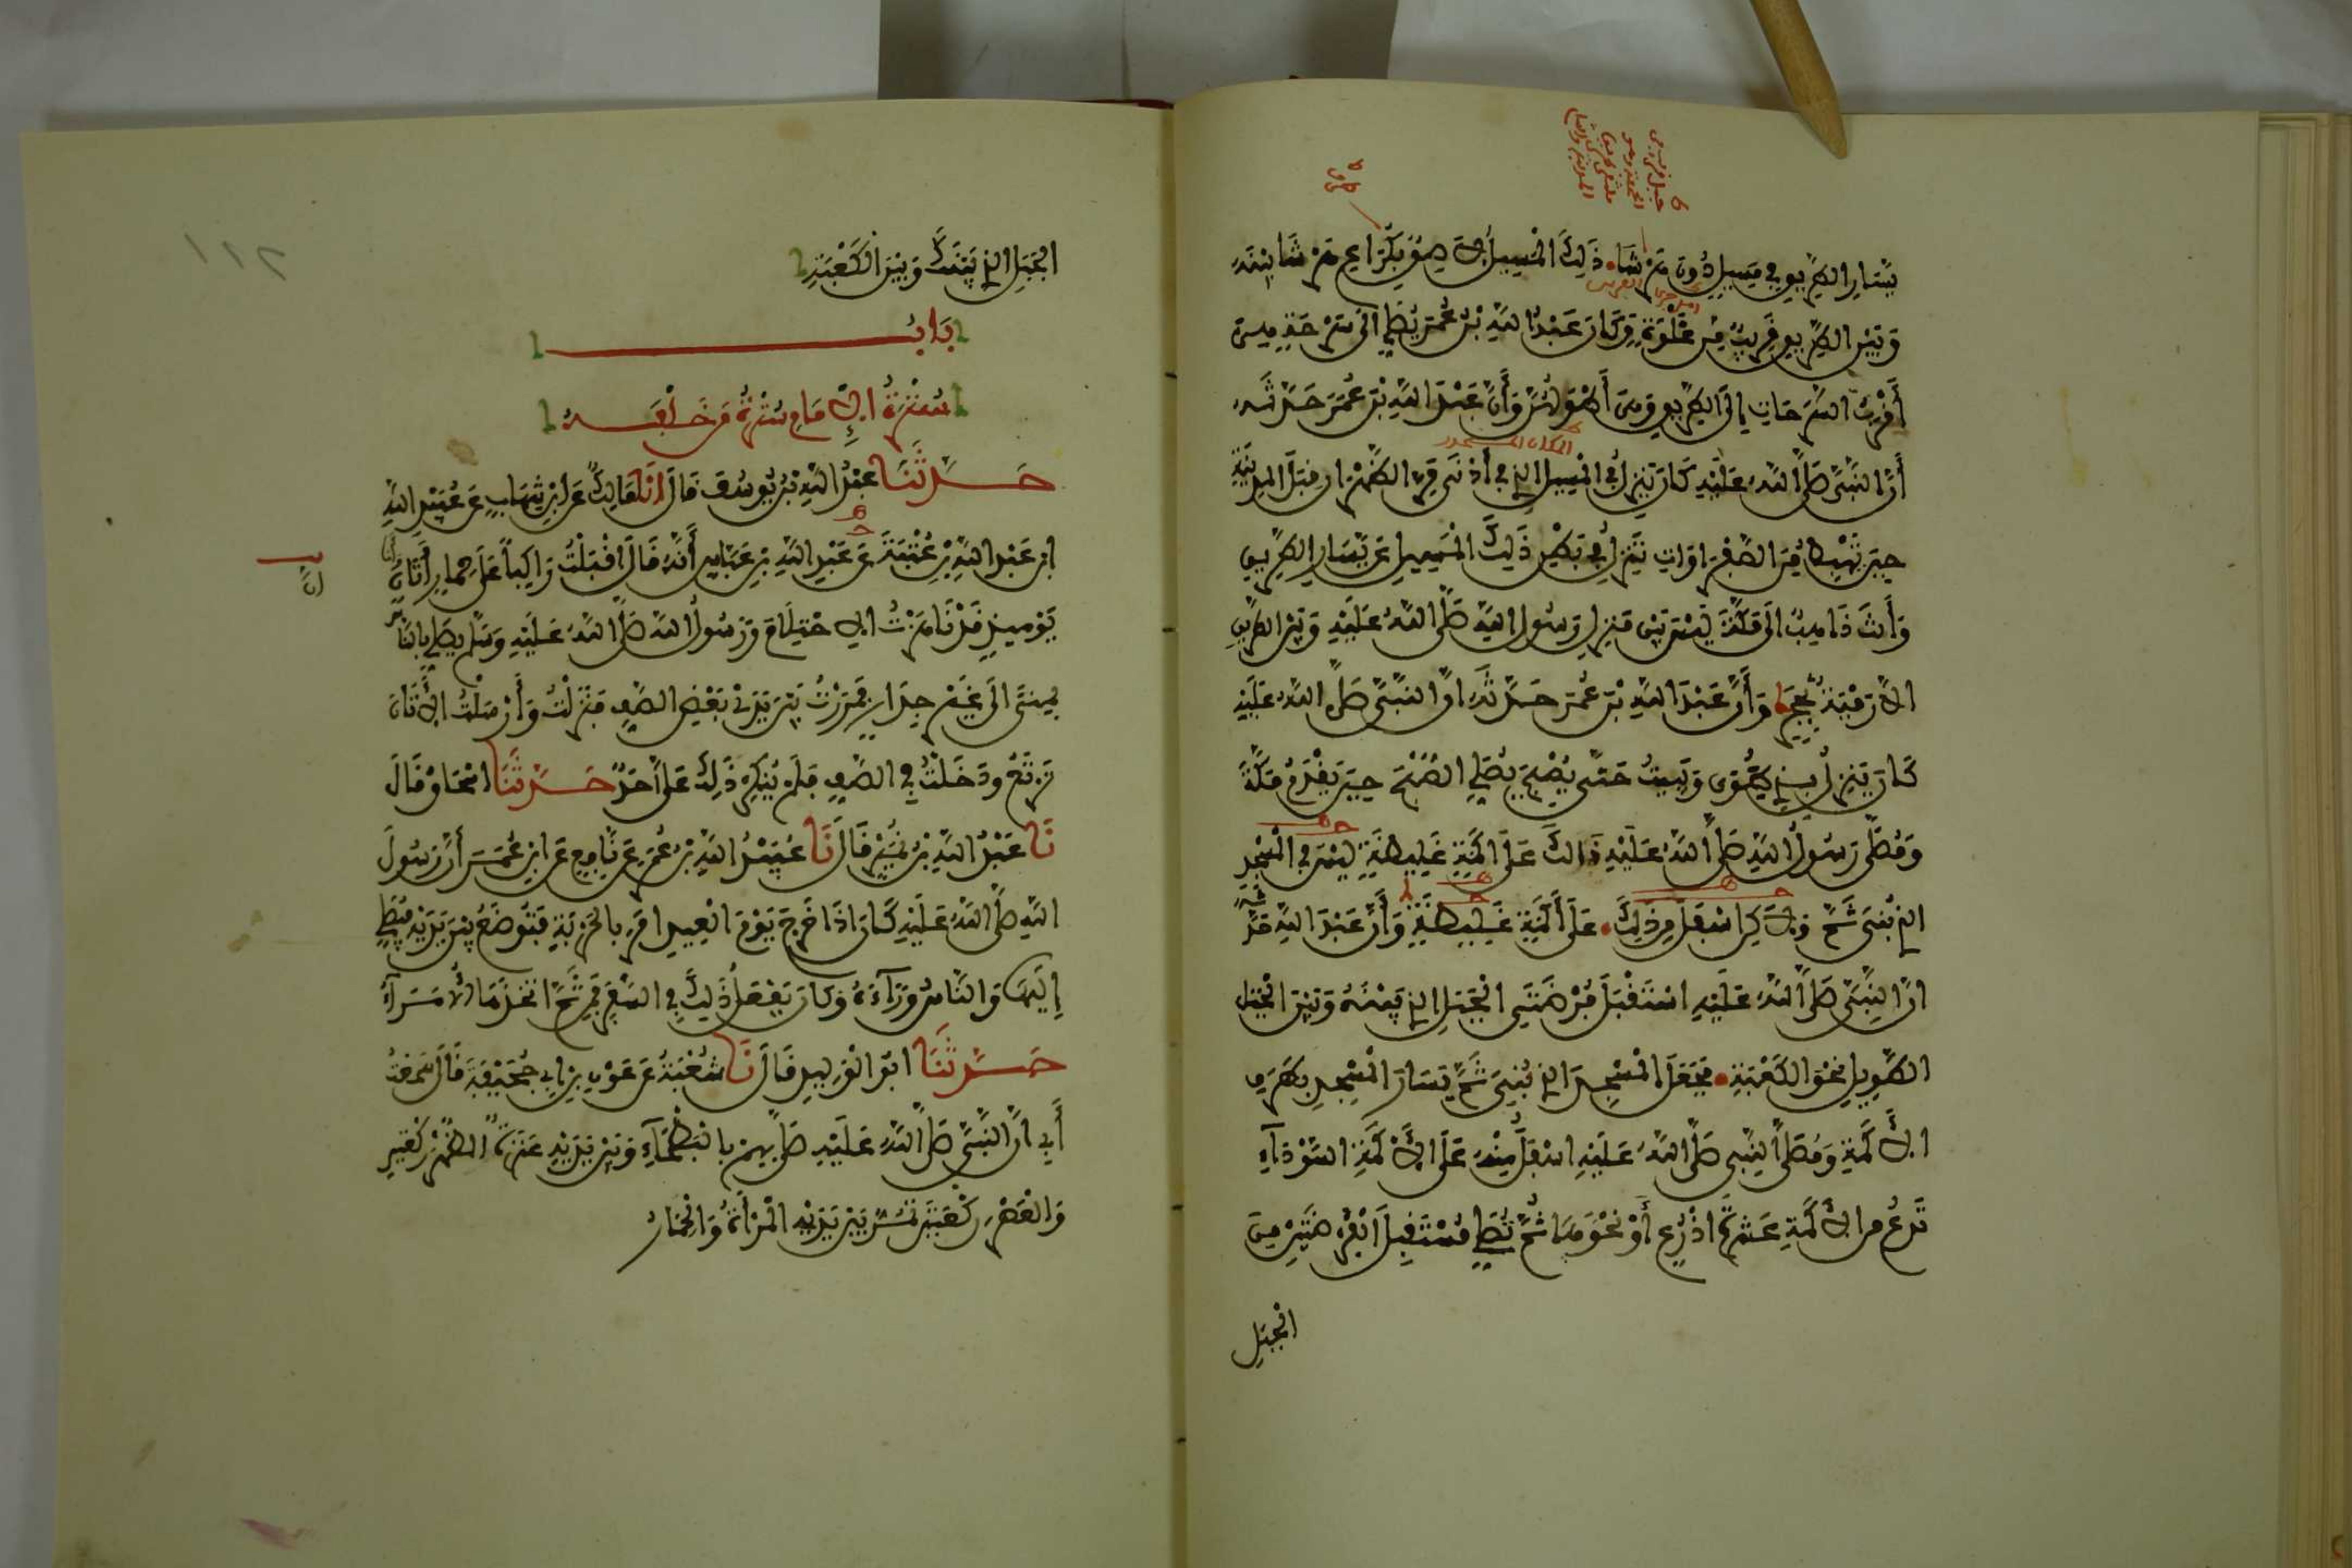 جبل قريب من
الجحفة وهو
ملتقى طريق
المدينة والشام
يَسَارِ الطَّرِيقِ فِي مَسِيلٍ دُونَ هَرْشَا ذَلِكَ الْمَسِيلُ لَاصِقٌ بِكُرَاعِ هَرْشَا بَيْنَهُ
وَبَيْنَ الطَّرِيقِ قَرِيبٌ مِنْ غَلْوَةٍ وَكَانَ عَبْدُ اللهِ بْنُ عُمَرَ يُصَلِّي إِلَى سَرْحَةٍ هِيَ
أَقْرَبُ السَّرَحَاتِ إِلَى الطَّرِيقِ وَهِيَ أَطْوَلُهُنَّ وَأَنَّ عَبْدَ اللهِ بْنَ عُمَرَ حَدَّثَهُ
المكان المنحدر
أَنَّ النَّبِيَّ صَلَّى اللهُ عَلَيْهِ كَانَ يَنْزِلُ فِي الْمَسِيلِ الذِي فِي أَدْنَى مَرِّ الظَّهْرَانِ قِبَلَ الْمَدِينَةِ
حِينَ تَهْبِطُ مِنَ الصَّفْرَاوَاتِ تَنْزِلُ فِي بَطْنِ ذَلِكَ الْمَسِيلِ عَنْ يَسَارِ الطَّرِيقِ
وَأَنْتَ ذَاهِبٌ إِلَى مَكَّةَ لَيْسَ بَيْنَ مَنْزِلِ رَسُولِ اللهِ صَلَّى اللهُ عَلَيْهِ وَبَيْنَ الطَّرِيقِ
الَّا رَمْيَةٌ بِحَجَرٍ وَأَنَّ عَبْدَ اللهِ بْنَ عُمَرَ حَدَّثَهُ انَّ النَّبِيَّ صَلَّى اللهُ عَلَيْهِ
كَانَ يَنْزِلُ بِذِي طُوًى وَيَبِيتُ حَتَّى يُصْبِحَ يُصَلِّي الصُّبْحَ حِينَ يَقْدَمُ مَكَّةَ
وَمُصَلَّى رَسُولِ اللهِ صَلَّى اللهُ عَلَيْهِ ذَالِكَ عَلَى أَكَمَةٍ غَلِيظَةٍ لَيْسَ فِي الْمَسْجِدِ
الذِي بُنِيَ ثَمَّ وَلَكِنْ اسْفَلَ مِنْ ذَلِكَ عَلَى أَكَمَةٍ غَلِيظَةٍ وَأَنَّ عَبْدَ اللهِ حَدَّثَهُ
انَّ النَّبِيَّ صَلَّى اللهُ عَلَيْهِ اسْتَقْبَلَ فُرْضَتَيِ الْجَبَلِ الذِي بَيْنَهُ وَبَيْنَ الْجَبَلِ
الطَّوِيلِ نَحْوَ الْكَعْبَةِ فَجَعَلَ الْمَسْجِدَ الذِي بُنِيَ ثَمَّ يَسَارَ الْمَسْجِدِ بِطَرَفِ
الْأَكَمَةِ وَمُصَلَّى النَّبِيِّ صَلَّى اللهُ عَلَيْهِ اسْفَلَ مِنْهُ عَلَى الْأَكَمَةِ السَّوْدَاءِ
تَدَعُ مِنَ الْأَكَمَةِ عَشْرَةَ اذْرُعٍ أَوْ نَحْوَهَا ثُمَّ تُصَلِّي مُسْتَقْبِلَ الْفُرْضَتَيْنِ مِنَ
الجبل
الْجَبَلِ الذِي بَيْنَكَ وَبَيْنَ الْكَعْبَةِ
بَابُ
سُتْرَةُ الْإِمَامِ سُتْرَةُ مَنْ خَلْفَهُ
حَدَّثَنَا عَبْدُ اللهِ بْنُ يُوسُفَ قَالَ أَنَا مَالِكٌ عَنِ ابْنِ شِهَابٍ عَنْ عُبَيْدِ اللهِ
ابْنِ عَبْدِ اللهِ بْنِ عُتْبَةَ عَنْ عَبْدِ اللهِ بْنِ عَبَّاسٍ أَنَّهُ قَالَ اقْبَلْتُ رَاكِبًا عَلَى حِمَارٍ أَتَانٍ وَأَنَا
يَوْمَئِذٍ قَدْ نَاهَزْتُ الِاحْتِلَامَ وَرَسُولُ اللهِ صَلَّى اللهُ عَلَيْهِ وَسَلَّمَ يُصَلِّي بِالنَّاسِ
بِمِنًى إِلَى غَيْرِ جِدَارٍ فَمَرَرْتُ بَيْنَ يَدَيْ بَعْضِ الصَّفِّ فَنَزَلْتُ وَأَرْسَلْتُ الْأَتَانَ
تَرْتَعُ وَدَخَلْتُ فِي الصَّفِّ فَلَمْ يُنْكِرْ ذَلِكَ عَلَيَّ أَحَدٌ حَدَّثَنَا اسْحَاقُ قَالَ
نَا عَبْدُ اللهِ بْنُ نُمَيْرٍ قَالَ نَا عُبَيْدُ اللهِ بْنُ عُمَرَ عَنْ نَافِعٍ عَنِ ابْنِ عُمَرَ أَنَّ رَسُولَ
اللهِ صَلَّى اللهُ عَلَيْهِ كَانَ اذَا خَرَجَ يَوْمَ الْعِيدِ امَرَ بِالْحَرْبَةِ فَتُوضَعُ بَيْنَ يَدَيْهِ فَيُصَلِّي
إِلَيْهَا وَالنَّاسُ وَرَاءَهُ وَكَانَ يَفْعَلُ ذَلِكَ فِي السَّفَرِ فَمِنْ ثَمَّ اتَّخَذَهَا الْأُمَرَاءُ
حَدَّثَنَا ابُو الْوَلِيدِ قَالَ نَا شُعْبَةُ عَنْ عَوْنِ بْنِ ابِي جُحَيْفَةَ قَالَ سَمِعْتُ
أَبِي انَّ النَّبِيَّ صَلَّى اللهُ عَلَيْهِ صَلَّى بِهِمْ بِالْبَطْحَاءِ وَبَيْنَ يَدَيْهِ عَنَزَةٌ الظُّهْرَ رَكْعَتَيْنِ
وَالْعَصْرَ رَكْعَتَيْنِ تَمُرُّ بَيْنَ يَدَيْهِ الْمَرْأَةُ وَالْحِمَارُ
١١٢